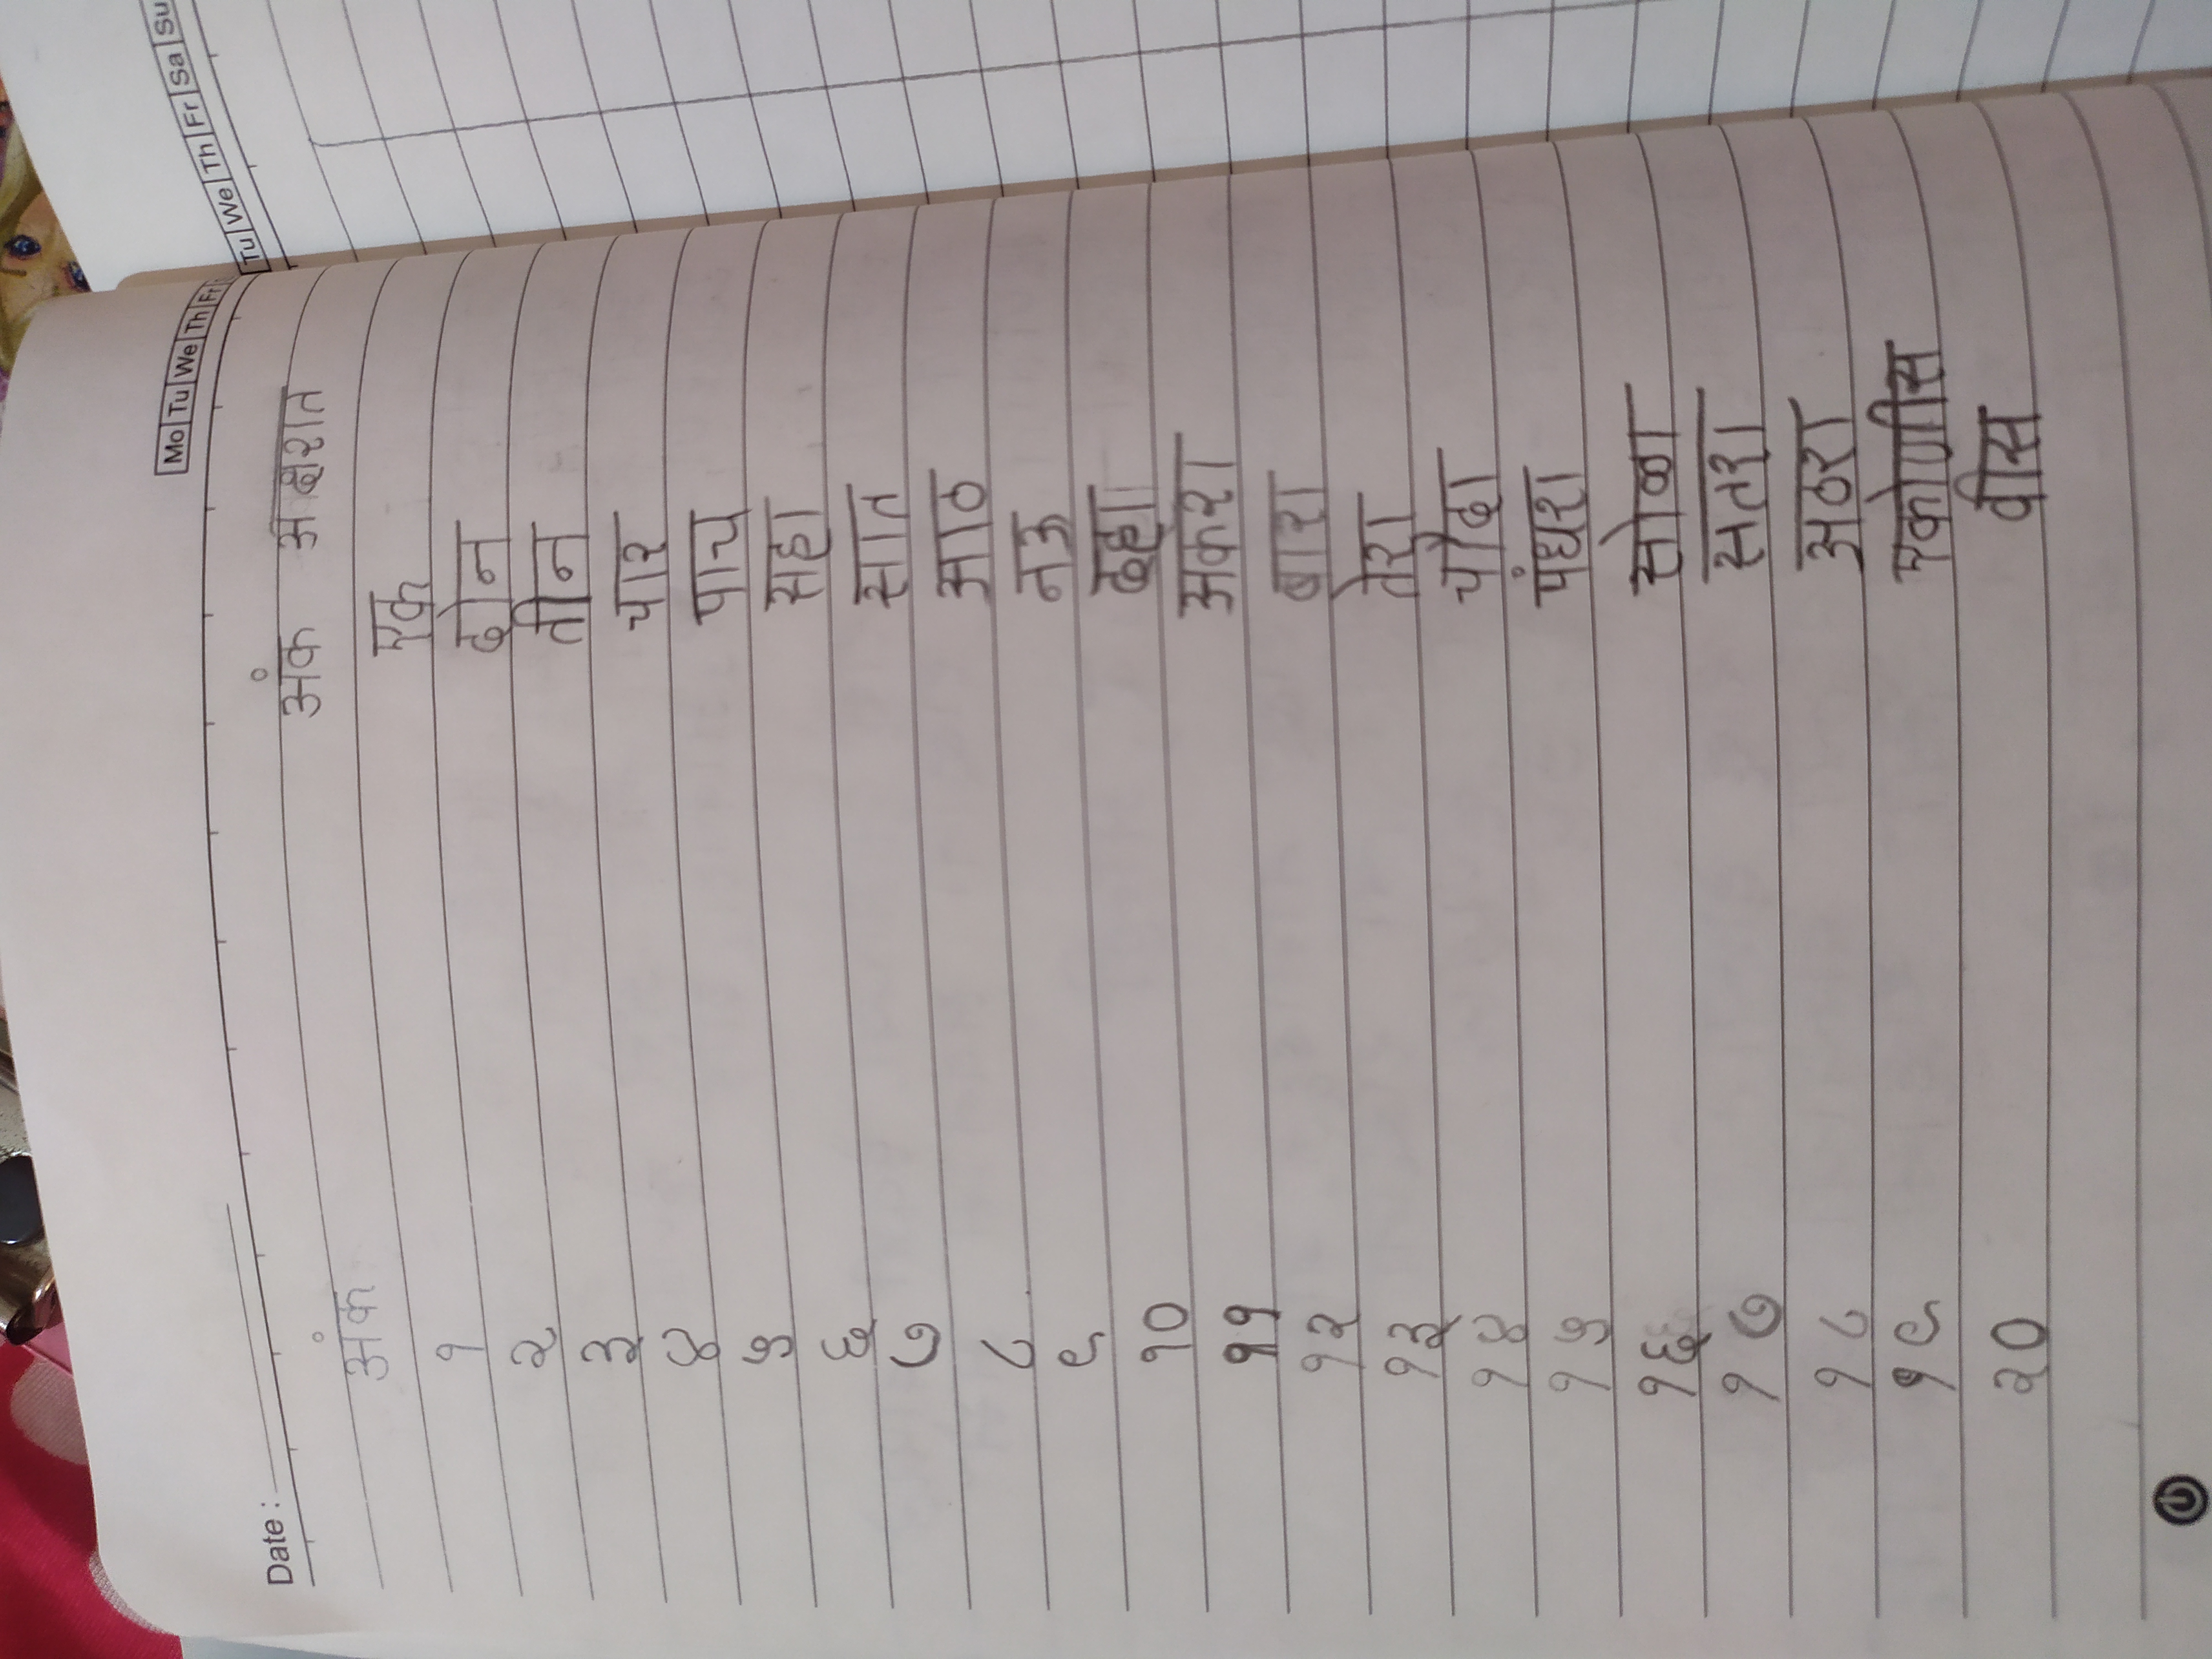 Tu We Th Fr Sa Su
Mo Tu We Th Fr
Date :
अंक अंक अक्षरात
१ एक
२ दोन
३ तीन
४ चार
५ पाच
६ सहा
७ सात
८ आठ
९ नऊ
१० दहा
११ अकरा
१२ बारा
१३ तेरा
१४ चौदा
१५ पंधरा
१६ सोळा
१७ सतरा
१८ अठरा
१९ एकोणीस
२० वीस